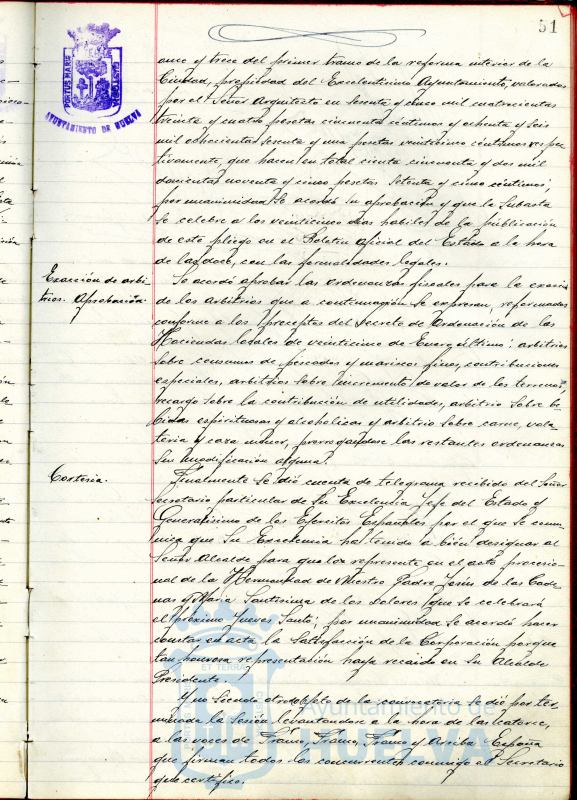 51
PORTUS MARIS ET TERRAE CUSTODIA
AYUNTAMIENTO DE HUELVA
once y trece del primer tramo de la reforma interior de la
Ciudad, propiedad del Excelentisimo Ayuntamiento, valorados
por el Señor Arquitecto en Sesenta y cinco mil cuatrocientas
veinte y cuatro pesetas cincuenta céntimos y ochenta y seis
mil ochocientas sesenta y una pesetas veinticinco céntimos respec
tivamente, que hacen en total ciento cincuenta y dos mil
doscientas noventa y cinco pesetas setenta y cinco céntimos;
por unanimidad Se acordó su aprobación y que la Subasta
se celebre a los veinticinco dias habiles de la publicación
de este pliego en el Boletin oficial del Estado a la hora
de las doce, con las formalidades legales.
Exacción de arbi
trios. Aprobación.
Se acordó aprobar las ordenanzas fiscales para la exacción
de los arbitrios que a continuación se expresan, reformados
conforme a los preceptos del Decreto de Ordenación de las
Haciendas locales de veinticinco de Enero último: arbitrios
sobre consumos de pescados y mariscos finos, contribuciones
especiales, arbitrios sobre incremento de valor de los terrenos,
recargo sobre la contribución de utilidades, arbitrio sobre be
bidas espirituosas y alcoholicas y arbitrio sobre carne, vola
teria y caza menor, prorrogandose las restantes ordenanzas
sin modificación alguna.
Cortesia.
Finalmente se dió cuenta de telegrama recibido del Señor
Secretario particular de Su Excelencia Jefe del Estado y
Generalisimo de los Ejercitos Españoles por el que se comu
nica que Su Excelencia ha tenido a bién designar al
Señor Alcalde para que lo represente en el acto procesio
nal de la Hermandad de Nuestro Padre Jesús de las Cade
nas y Maria Santisima de los Dolores que se celebrará
el próximo Jueves Santo; por unanimidad se acordó hacer
constar en acta la Satisfacción de la Corporación porque
tan honrosa representación haya recaido en su Alcalde
Presidente.
Y no siendo otro objeto de la convocatoria se dió por ter
minada la sesión levantandose a la hora de las catorce,
a las voces de Franco, Franco, Franco y Arriba España
que firman todos los concurrentes conmigo el Secretario
que certifico.
Ayuntamiento de
HUELVA